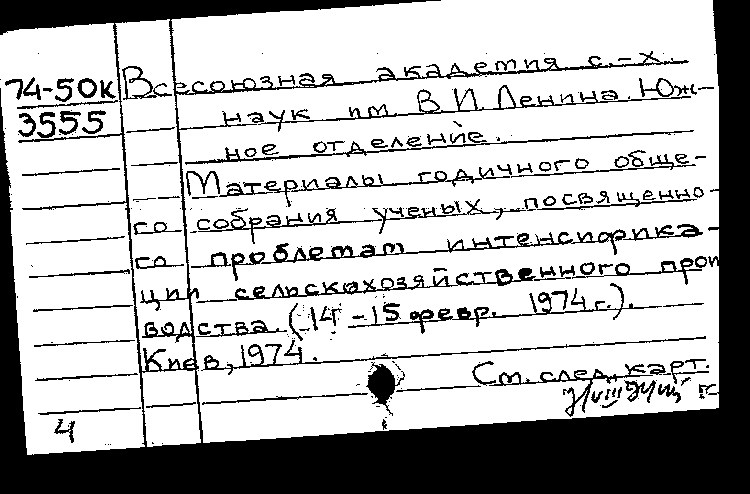 74-50к Всесоюзная академия с.-х.
3555 наук им. В.И. Ленина. Юж-
ное отделение.
Материалы годичного обще-
го собрания ученых, посвященно-
го проблемам интенсифика-
ции сельскохозяйственного прои
водства. (14-15 февр. 1974 г.).
Киев, 1974.
См. след. карт.
4